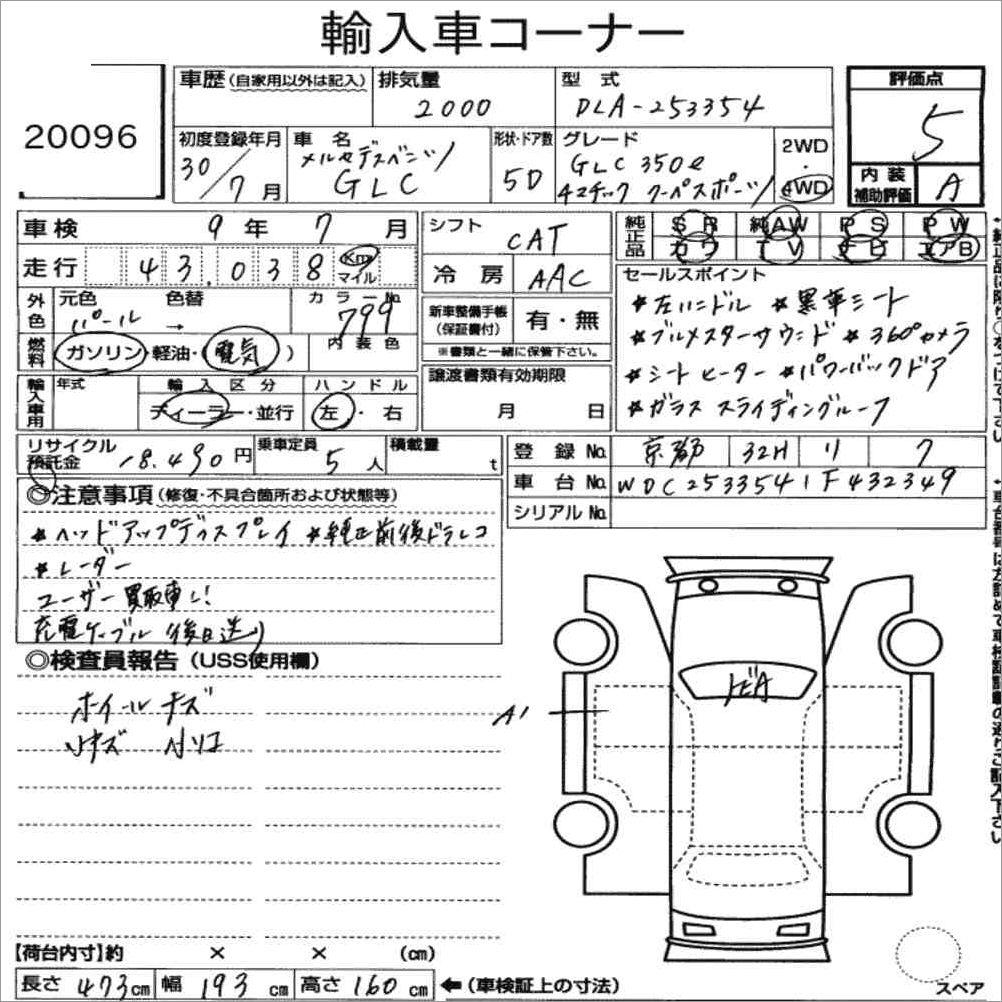 輸入車コーナー
20096
車歴(自家用以外は記入)
排気量
2000
型式
DLA-253354
評価点
5
初度登録年月
30/7月
車名
メルセデスベンツ
GLC
形状・ドア数
5D
グレード
GLC 350e
4マチック クーペスポーツ
2WD
・
4WD
内装
補助評価
A
車検 9年 7月
走行 43,038 Km マイル
シフト
CAT
冷房
AAC
純正品
SR 純AW PS PW
カワ TV ナビ エアB
セールスポイント
*左ハンドル *黒革シート
*ブルメスターサウンド *360°カメラ
*シートヒーター *パワーバックドア
*ガラス スライディングルーフ
外色
元色 色替
パール →
カラーNo.
799
内装色
燃料
ガソリン・軽油・(電気)
新車整備手帳
(保証書付)
有・無
※書類と一緒に保管下さい。
輸入車用
年式
輸入区分
ディーラー・並行
ハンドル
左・右
譲渡書類有効期限
月 日
リサイクル
預託金
18,490円
乗車定員
5人
積載量
t
登録No. 京都 324 リ 7
車台No. WDC2533541F432349
シリアルNo.
◎注意事項(修復・不具合箇所および状態等)
*ヘッドアップディスプレイ *純正前後ドラレコ
*レーダー
ユーザー買取車し!
充電ケーブル(後日送)
◎検査員報告(USS使用欄)
ホイールキズ
小キズ 小凹
A1
トビA
【荷台内寸】約 × × (cm)
長さ 473cm 幅 193cm 高さ 160cm
←(車検証上の寸法)
スペア